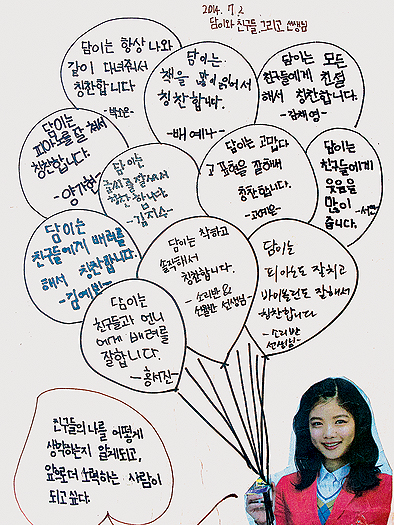 2014. 7. 2
담이와 친구들, 그리고 선생님
담이는 항상 나와
같이 다녀줘서
칭찬합니다
-박소은-
담이는
책을 많이 읽어서
칭찬합니다.
-배예나-
담이는 모든
친구들에게 친절
해서 칭찬합니다.
-김채영-
담이는
피아노를 잘 쳐서
칭찬합니다.
-양가현-
담이는
글씨를 잘 써서
칭찬합니다.
-김지수-
담이는 고맙다
고 표현을 잘해서
칭찬합니다.
담이는
친구들에게
웃음을
많이
줍니다.
담이는
친구들에게 배려를
해서 칭찬합니다.
-김예빈-
담이는 착하고
솔직해서
칭찬합니다.
- 소리반 &
선생님-
담이는
피아노도 잘치고
바이올린도 잘해서
칭찬합니다
-소리반
선생님-
담이는
친구들과 언니
에게 배려를
잘합니다.
-황서진-
친구들의 나를 어떻게
생각하는지 알게되고,
앞으로 더 노력하는 사람이
되고 싶다.